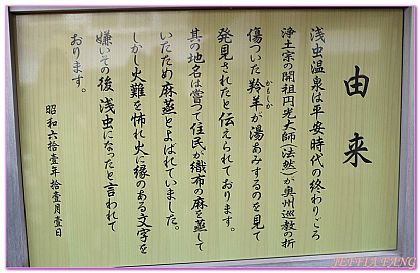 由来
浅虫温泉は平安時代の終わりごろ
浄土宗の開祖円光大師(法然)が奥州巡教の折
傷ついた羚羊が湯あみするのを見て
かもしか
発見されたと伝えられております。
其の地名は嘗つて住民が織布の麻を蒸して
いたため麻蒸とよばれていました。
しかし火難を怖れ火に縁のある文字を
嫌いその後 浅虫になったと言われて
おります。
昭和六拾壹年 拾壹月壹日
TEFFIA FANG